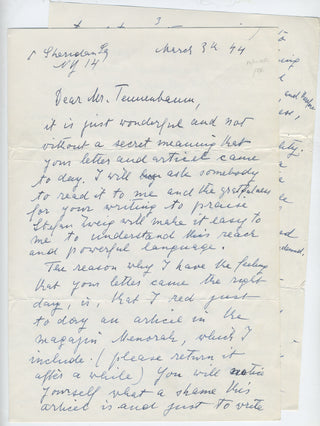 3
1 Sheridan Sq
NY 14
March 3d 44
Dear Mr. Tennenbaum,
it is just wonderful and not
without a secret meaning that
your letter and articel came
to day. I will ask somebody
to read it to me and the gratefulness
for your writing to praise
Stefan Zweig will make it easy to
me to understand this reach
and powerful language.
The reason why I have the feeling
that your letter came the right
day, is, that I red just
to day an articel in the
magazin Menorah, which I
include. (please return it
after a while) You will notice
yourself what a shame this
articel is and just to write